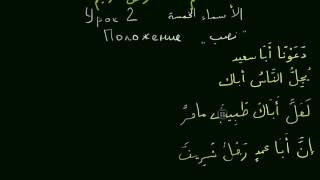 الأسماء الخمسة Урок 2
Положение "نصب"
دَعَوْنا أَبَا سعيد
يُجِلُّ النَّاسُ أباك
لَعَلَّ أَبَاكَ طَبِيبٌ
إِنَّ أَبَا محمدٍ رَجُلٌ شريفٌ